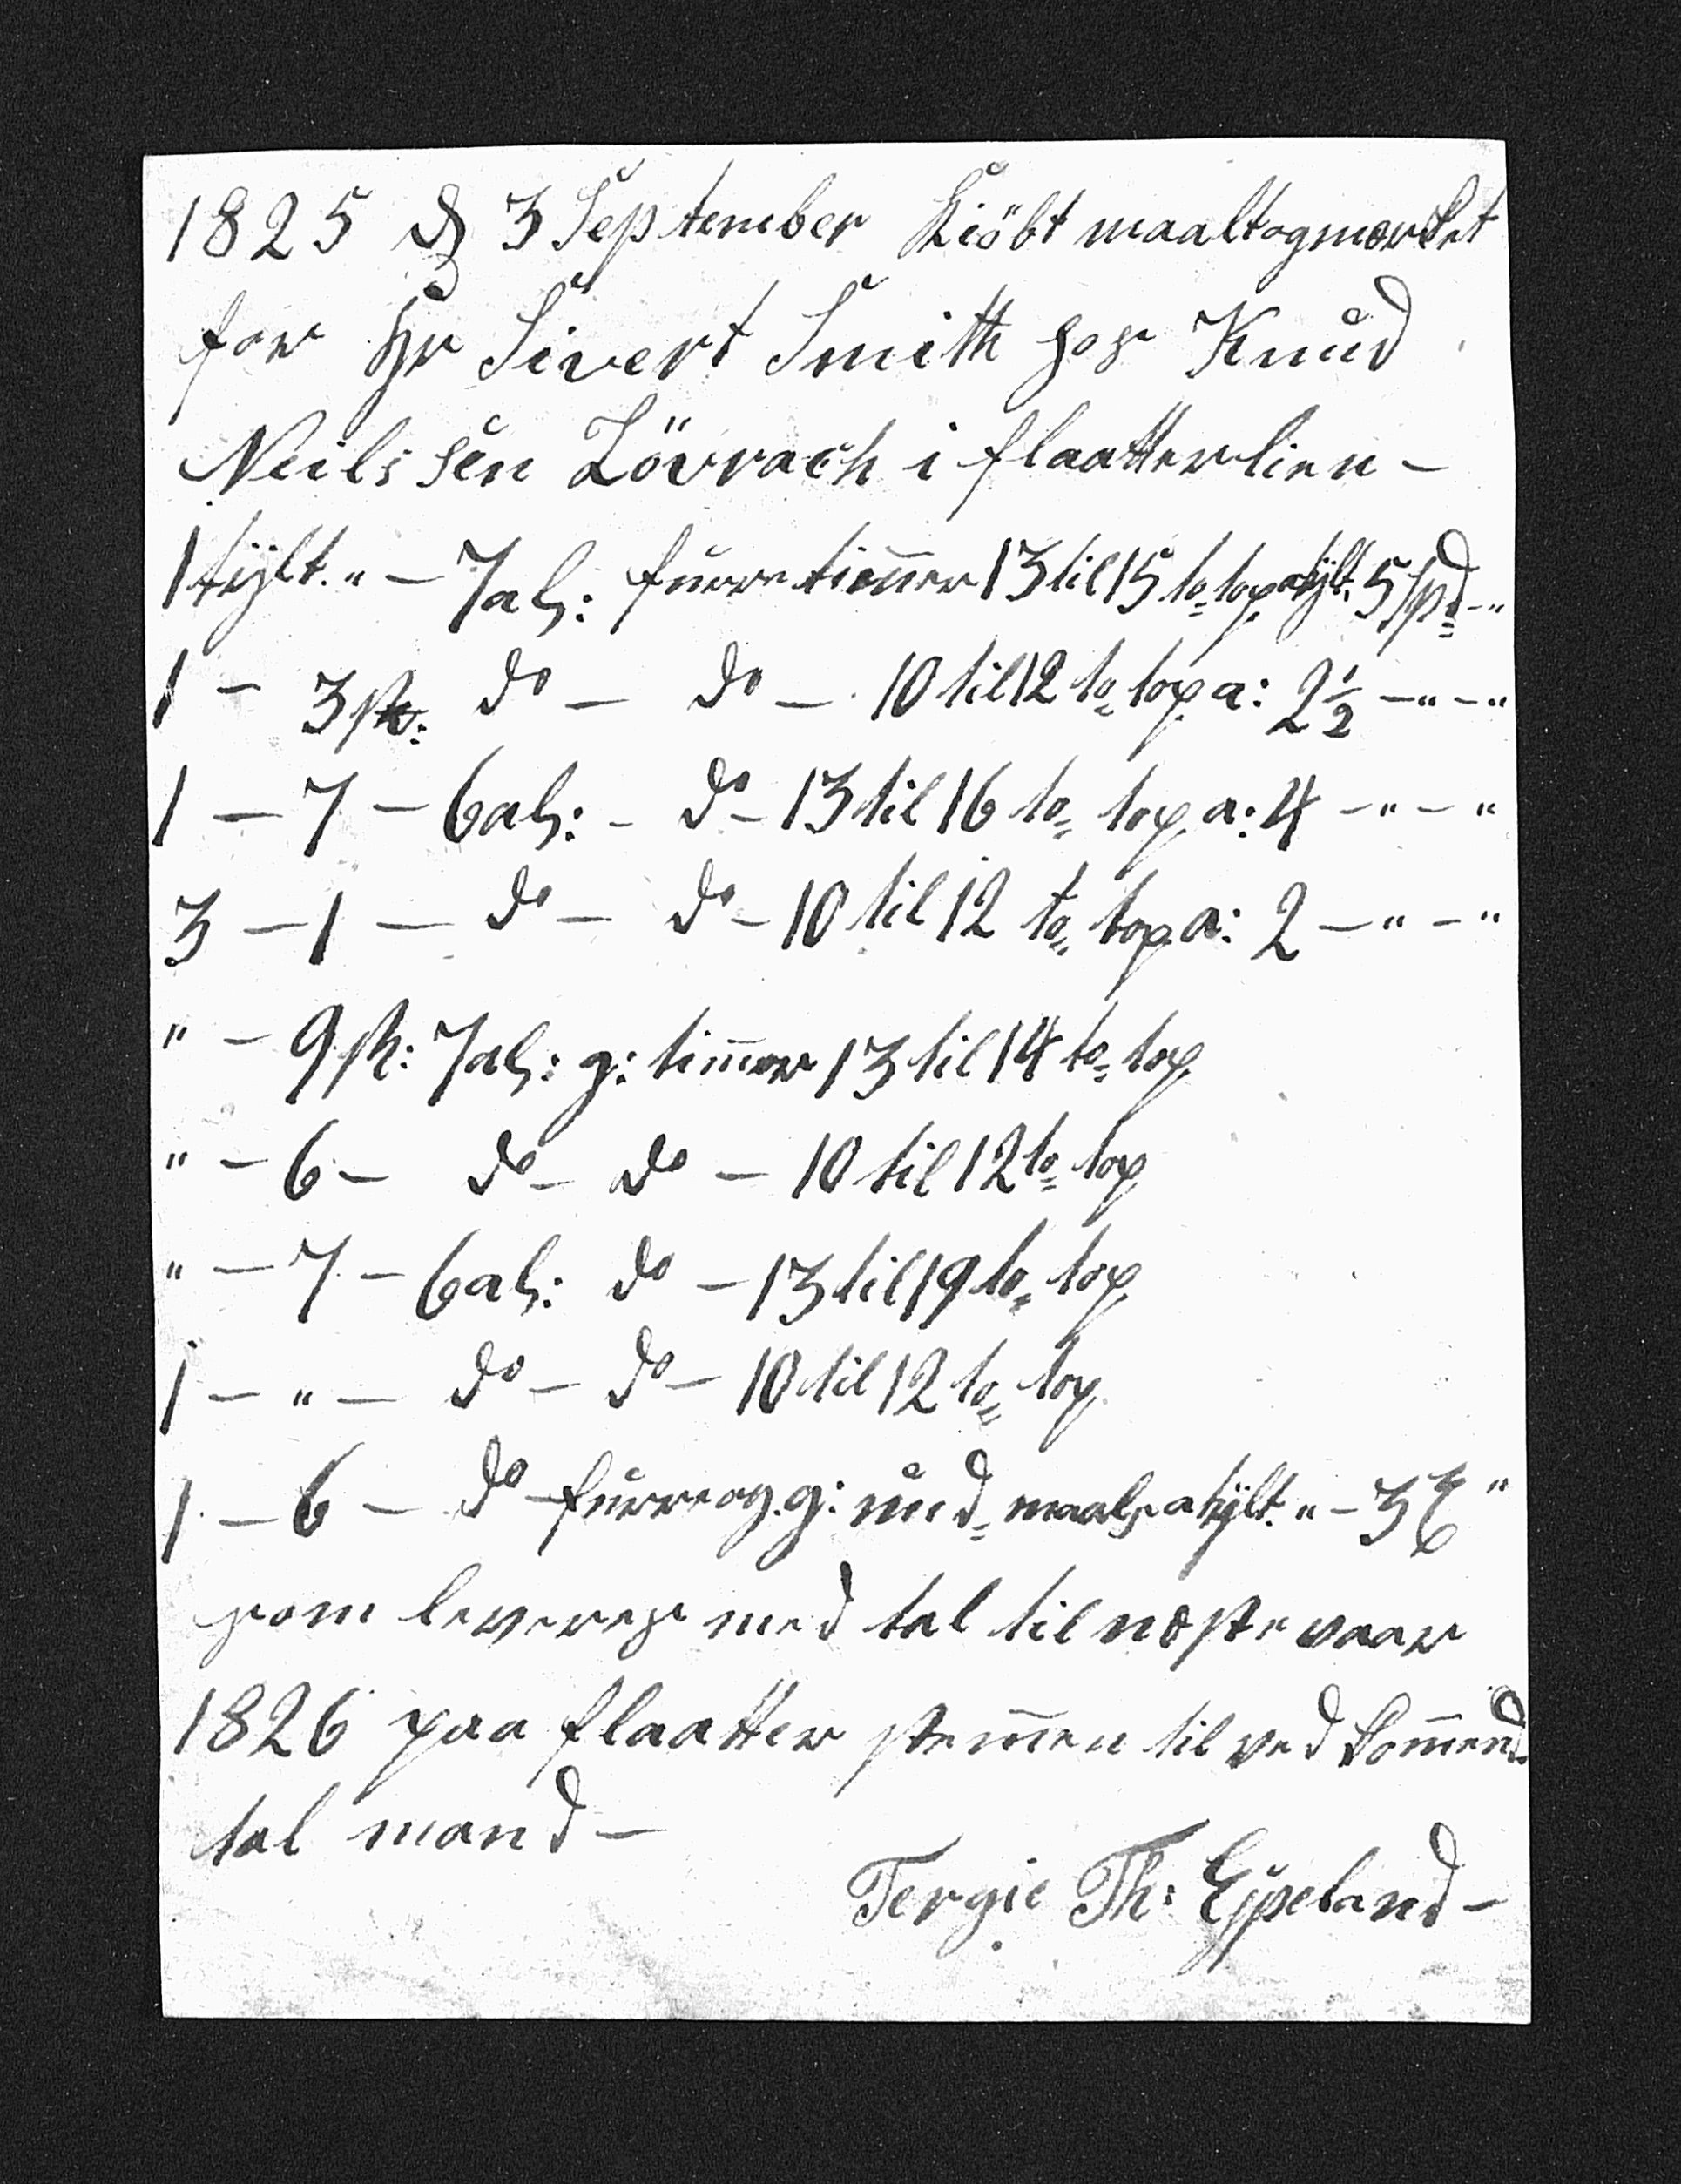 1825 d 3 September Kiöbt maalt og mærket
for Hr Sivert Smitth hos Knud
Neilssen Lövrach i flaatterlien –
1 tÿlt. " – 7 al: furre tim̄er 13 til 15 to top a tÿlt. 5 Spd – "
1 – 3 st: do – do – 10 til 12 to top a: 2½ – " – "
1 – 7 – 6 al: – do – 13 til 16 to top a: 4 – " – "
3 – 1 – do – do – 10 til 12 to top a: 2 – " – "
" – 9 st: 7 al: g: tim̄er 13 til 14 to top
" – 6 – do – do – 10 til 12 to top
" – 7 – 6 al: do – 13 til 19 to top
1 – " – do – do – 10 til 12 to top
1 – 6 – do – furre og g: und maals a tÿlt. " – 3 "
som leveres med tal til næste vaar
1826 paa flaatter stem̄en til ved kom̄end
tal mand –
Tergie Th: Eÿpeland –